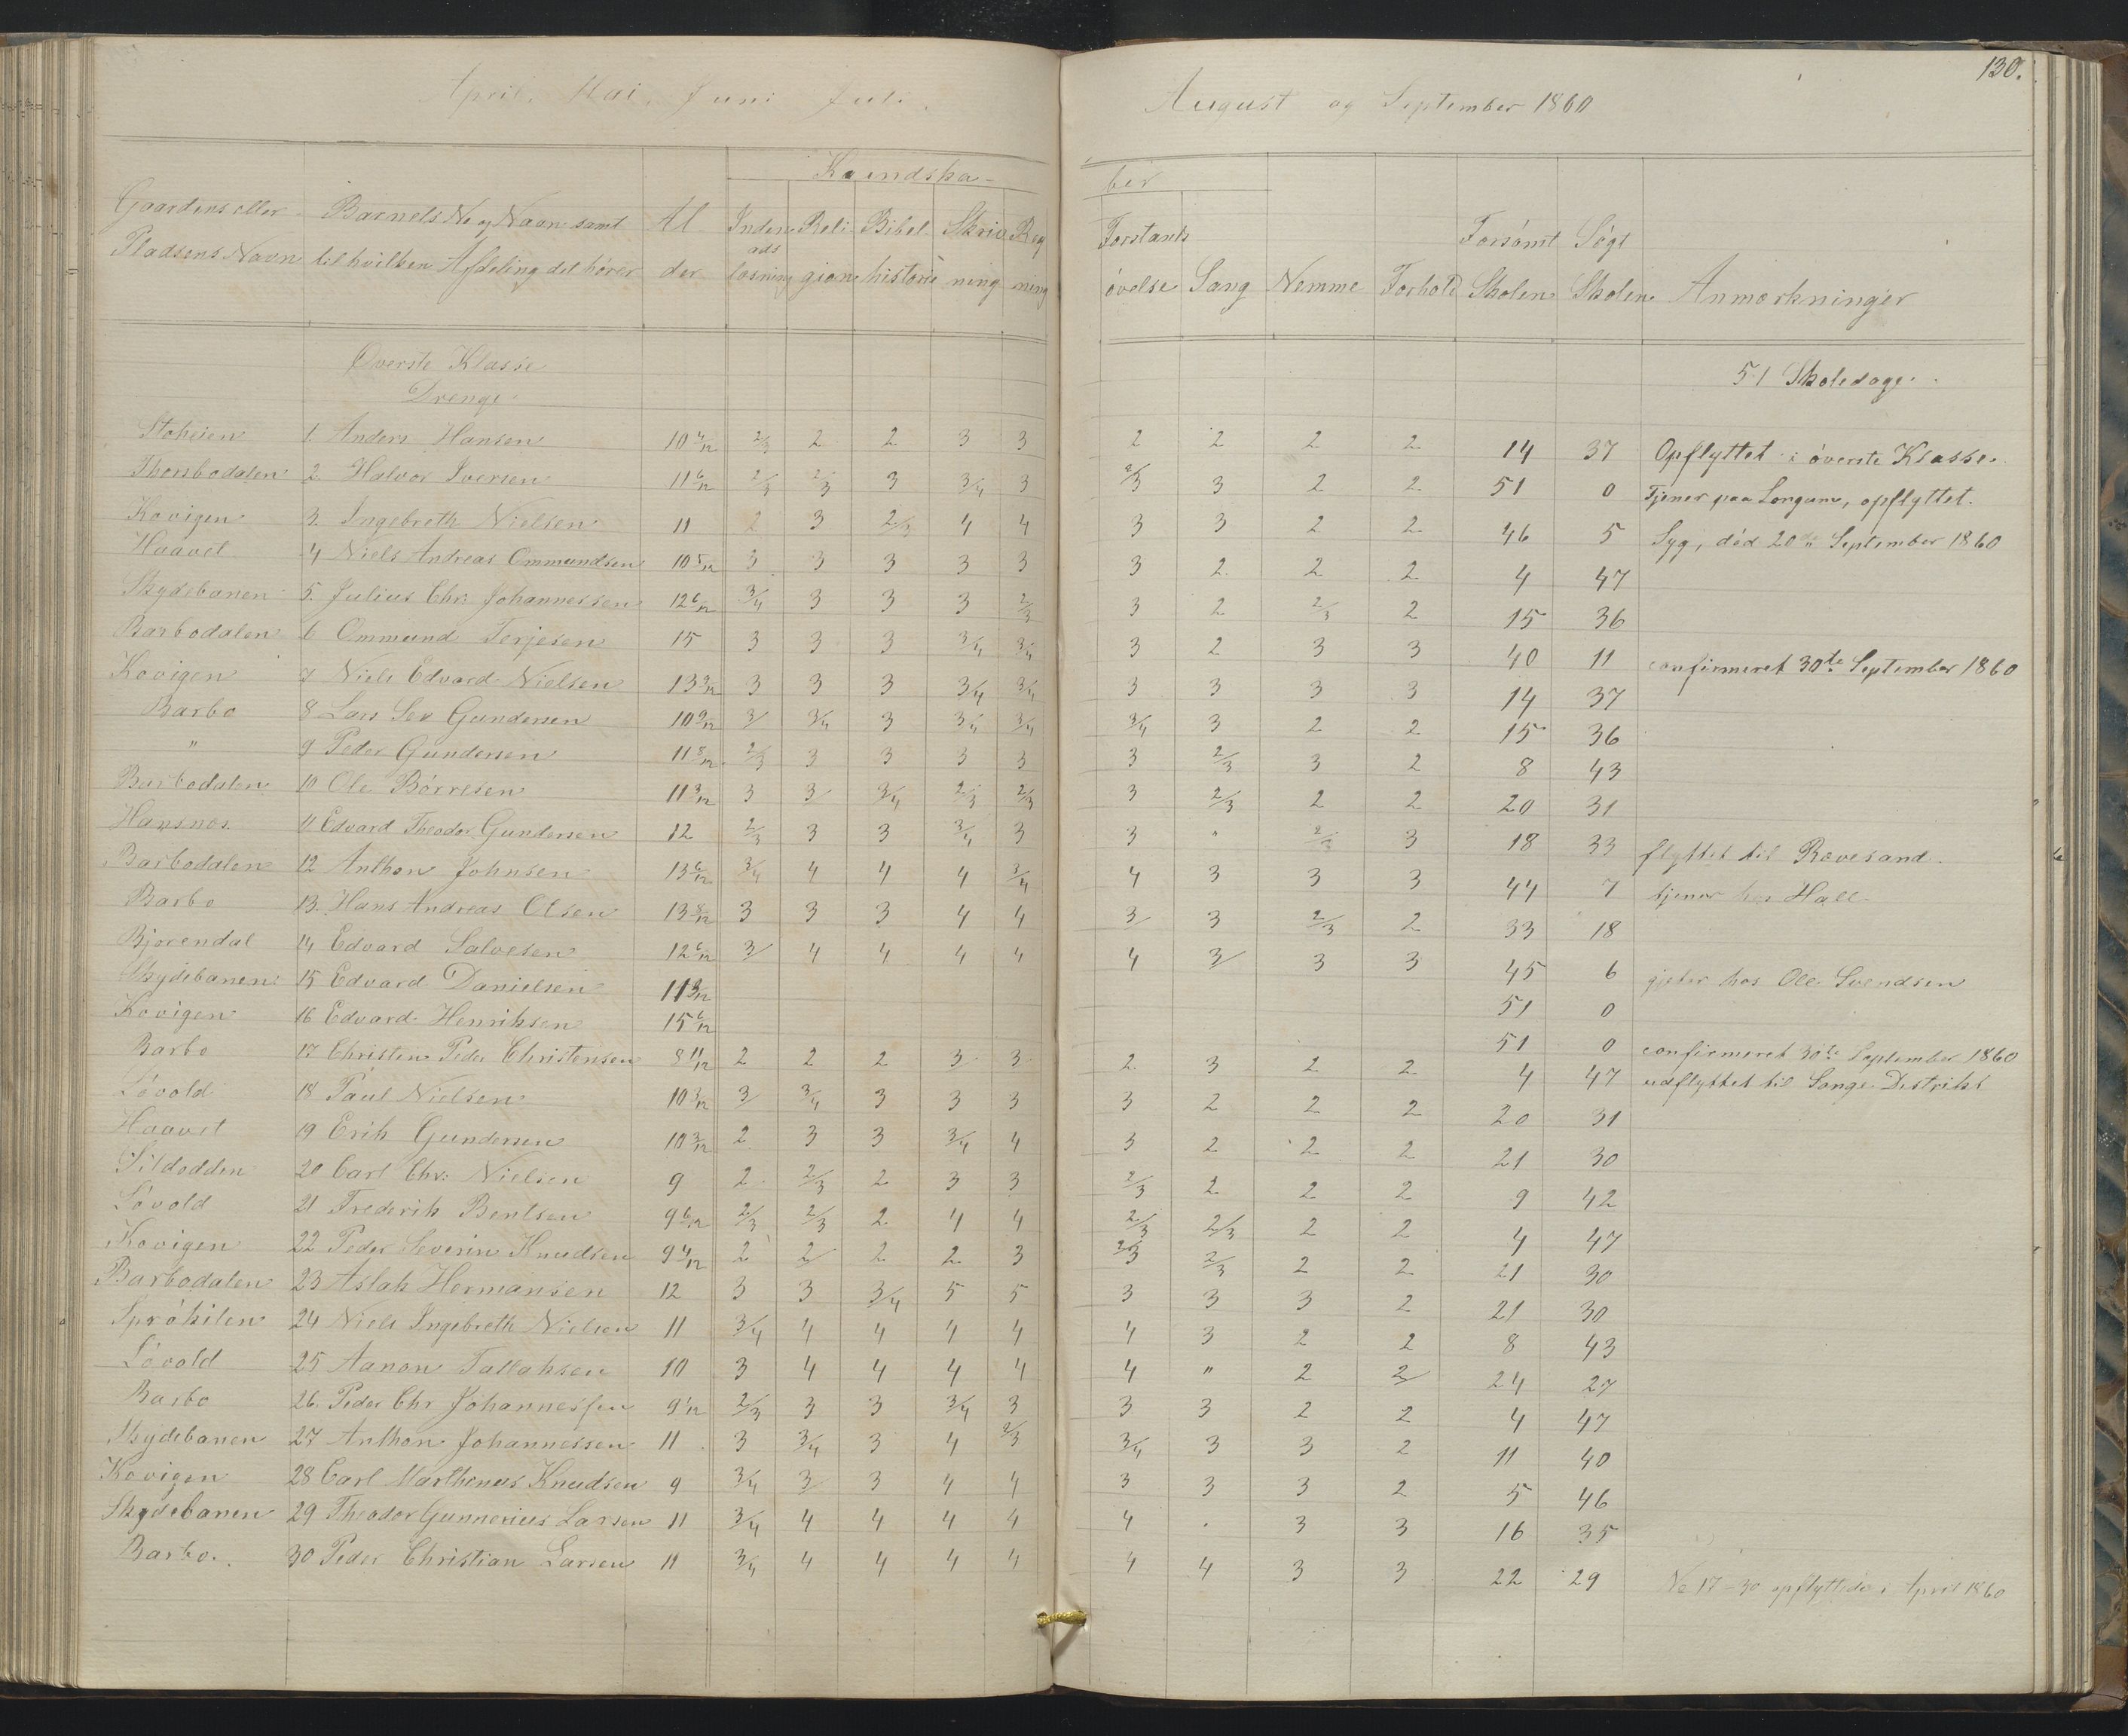 130.
April, Mai, Juni Juli, August og September 1860
Kundska- ber
Gaardens eller Pladsens Navn | Barnets No og Navn samt til hvilken Afdeling det hører | Al der | Inden ads læsning | Reli gion | Bibel historie | Skriv ning | Reg ning | Forstands øvelse | Sang | Nemme | Forhold | Forsømt Skolen | Søgt Skolen | Anmærkninger
Øverste Klasse
51 Skoledage
Drenge
Stoheien 1. Anders Hansen 10 4/12 2/3 2 2 3 3 2 2 2 2 14 37 Opflyttet i øverste Klasse.
Thorsbodalen 2. Halvor Iversen 11 6/12 2/3 2/3 3 3/4 3 2/3 3 2 2 51 0 Tjener paa Longum, opflyttet.
Kovigen 3. Ingebreth Nielsen 11 2 3 2/3 4 4 3 3 2 2 46 5 Syg, død 20de September 1860
Haavet 4 Niels Andreas Ommundsen 10 5/12 3 3 3 3 3 3 2 2 2 4 47
Skydebanen 5. Julius Chr: Johannessen 12 6/12 3/4 3 3 3 2/3 3 2 2/3 2 15 36
Barbodalen 6 Ommund Terjesen 15 3 3 3 3/4 3/4 3 2 3 3 40 11 confirmeret 30te September 1860
Kovigen 7 Niels Edvard Nielsen 13 3/12 3 3 3 3/4 3/4 3 3 3 3 14 37
Barbo 8 Lars Sev Gundersen 10 9/12 3/ 3/4 3 3/4 3/4 3/4 3 2 2 15 36
" 9 Peder Gundersen 11 8/12 2/3 3 3 3 3 3 2/3 3 2 8 43
Barbodalen 10 Ole Børresen 11 9/12 3 3/ 3/4 2/3 2/3 3 2/3 2 2 20 31
Hansnes 11 Edvard Theodor Gundersen 12 2/3 3 3 3/4 3 3 " 2/3 3 18 33 flyttet til Rævesand
Barbodalen 12 Anthon Johnsen 13 6/12 3/4 4 4 4 3/4 4 3 3 3 44 7 tjener hos Hall
Barbo 13. Hans Andreas Olsen 13 8/12 3 3 3 4 4 3/ 3 2/3 2 33 18
Bjørendal 14 Edvard Salvesen 12 6/12 3/ 4 4 4 4 4 3/ 3 3 45 6 gjeter hos Ole Svendsen
Skydebanen 15 Edvard Danielsen 11 3/12 51 0
Kovigen 16 Edvard Henriksen 15 6/12 51 0 confirmeret 30te September 1860
Barbo 17 Christen Peder Christensen 8 11/12 2 2 2 3 3 2 3 2 2 4 47 udflyttet til Songe Distrikt
Løvold 18 Paul Nielsen 10 3/12 3/ 3/4 3 3 3 3 2 2 2 20 31
Haavet 19 Erik Gundersen 10 3/12 2 3 3 3/4 4 3 2 2 2 21 30
Sildodden 20 Carl Chr: Nielsen 9 2 2/3 2 3 3 2/3 2 2 2 9 42
Løvold 21 Frederik Bentsen 9 6/12 2/3 2/3 2 4 4 2/3 2/3 2 2 4 47
Kovigen 22 Peder Severin Knudsen 9 4/12 2 2/ 2 2 3 2/3 2/3 2 2 21 30
Barbodalen 23 Aslak Hermansen 12 3 3 3/4 5 5 3 3 3 2 21 30
Sprøkilen 24 Niels Ingebreth Nielsen 11 3/4 4 4 4 4 4 3 2 2 8 43
Løvold 25 Aanon Tallaksen 10 3 4 4 4 4 4 " 2 2/ 24 27
Barbo 26. Peder Chr Johannessen 9 1/12 2/3 3 3 3/4 3 3 3 2 2 4 47
Skydebanen 27 Anthon Johannessen 11 3 3/4 3 4 2/3 3/4 3 3 2 11 40
Kovigen 28 Carl Marthenus Knudsen 9 3/4 3/ 3 4 4 3 3 3 2 5 46
Skydebanen 29 Theodor Gunnerius Larsen 11 3/4 4 4 4 4 4 . 3 3 16 35
Barbo. 30 Peder Christian Larsen 11 3/4 4 4 4 4 4 4 3 3 22 29 No 17-30 opflyttede i April 1860